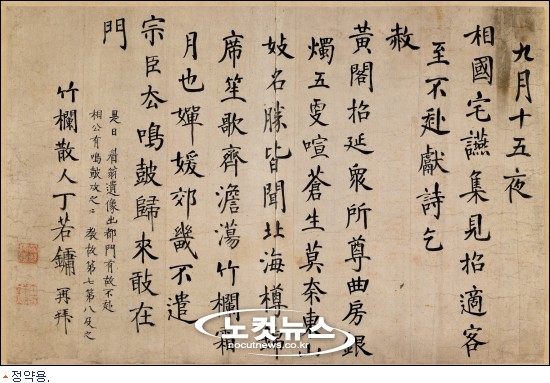 九月十五夜
相國宅讌集見招適客
至不赴獻詩乞
赦
黃閣招延衆所尊曲房銀
燭五更喧蒼生莫奈東山
妓名勝皆聞北海樽錦
席笙歌齊澹蕩竹欄霜
月也嬋媛郊畿不遣
宗臣去鳴鼓歸來敢在
門
是日 眉翁遺像出都門有故不赴
相公有鳴鼓攻之之 敎故第七第八及之
竹欄散人丁若鏞 再拜
노컷뉴스
nocutnews.co.kr
정약용.